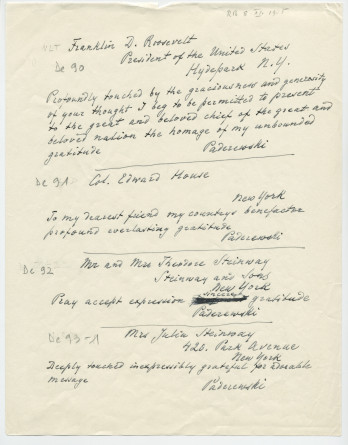 Franklin D. Roosevelt
President of the United States
De 90
Hydepark N.Y.
Profoundly touched by the graciousness and generosity
of your thought I beg to be permitted to present
to the great and beloved chief of the great and
beloved nation the homage of my unbounded
gratitude
Paderewski
De 91
Col. Edward House
New York
To my dearest friend my countrys benefactor
profound everlasting gratitude
Paderewski
De 92
Mr and Mrs Theodore Steinway
Steinway and Sons
New York
Pray accept expression sincerest gratitude
Paderewski
De 93-1
Mrs Julia Steinway
420. Park Avenue
New York
Deeply touched inexpressibly grateful for adorable
message
Paderewski